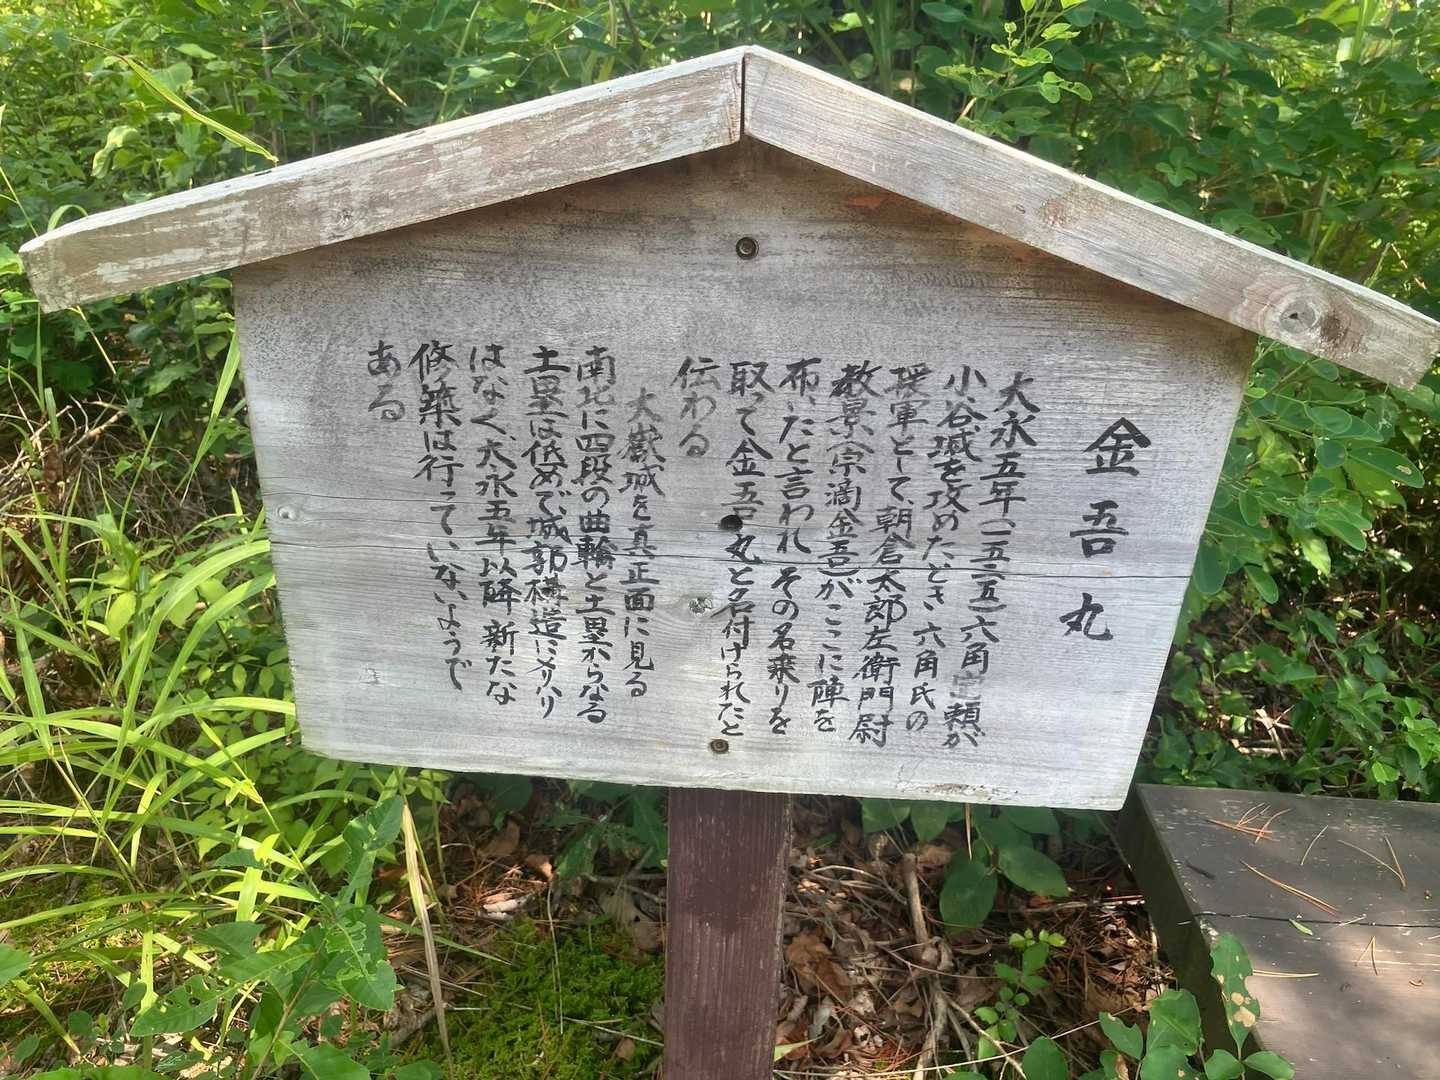 金吾丸
大永五年(一五二五)六角定頼が
小谷城を攻めたどき六角氏の
援軍として、朝倉太郎左衛門尉
教景(宗滴金吾)がここに陣を
布いたと言われその名乗りを
取って金吾丸と名付けられたと
伝わる
大嶽城を真正面に見る
南北に四段の曲輪と土塁からなる
土塁は低めで、城郭構造にメリハリ
はなく、大永五年以降新たな
修築は行っていないようで
ある